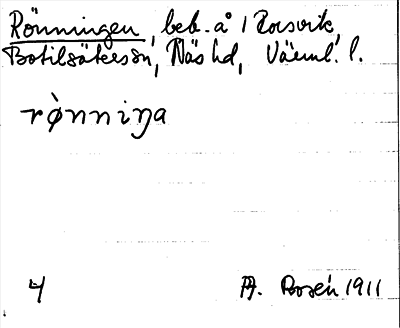 Rönningen, beb. å 1 Rosvik,
Botilsäters sn, Näs hd, Värml. l.
rònniŋa
4 Rosén 1911